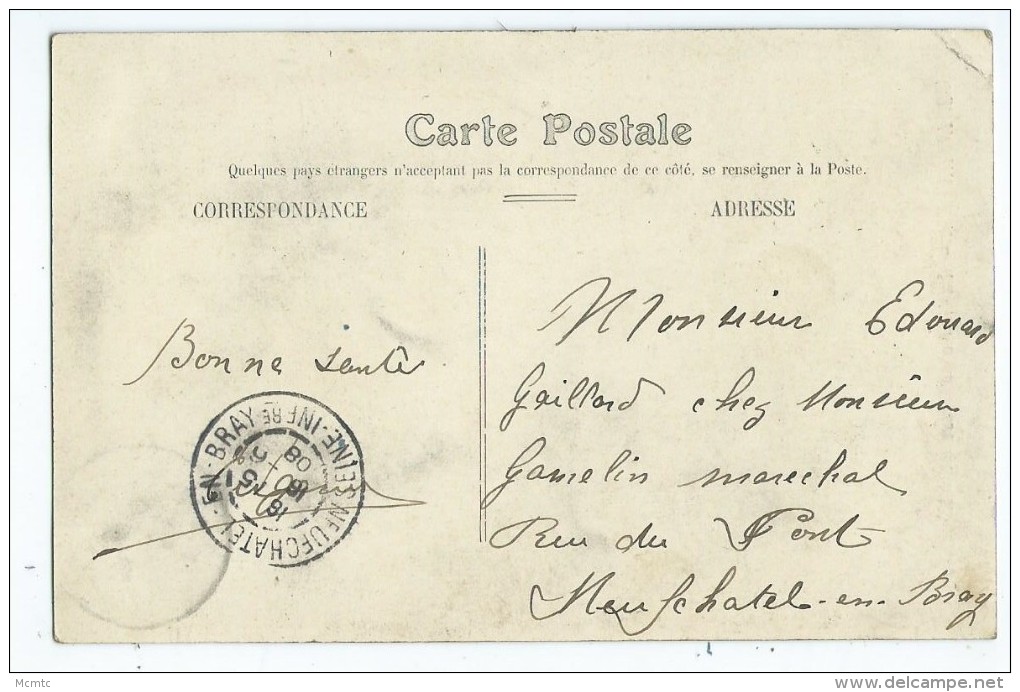 Carte Postale
Quelques pays étrangers n'acceptant pas la correspondance de ce côté, se renseigner à la Poste.
CORRESPONDANCE
ADRESSE
Bonne santé
Monsieur Edouard
Gaillard chez Monsieur
Gamelin marechal
Rue du Pont
Neufchatel-en-Bray
NEUFCHATEL-EN-BRAY SEINE-INFRE
Mcmtc